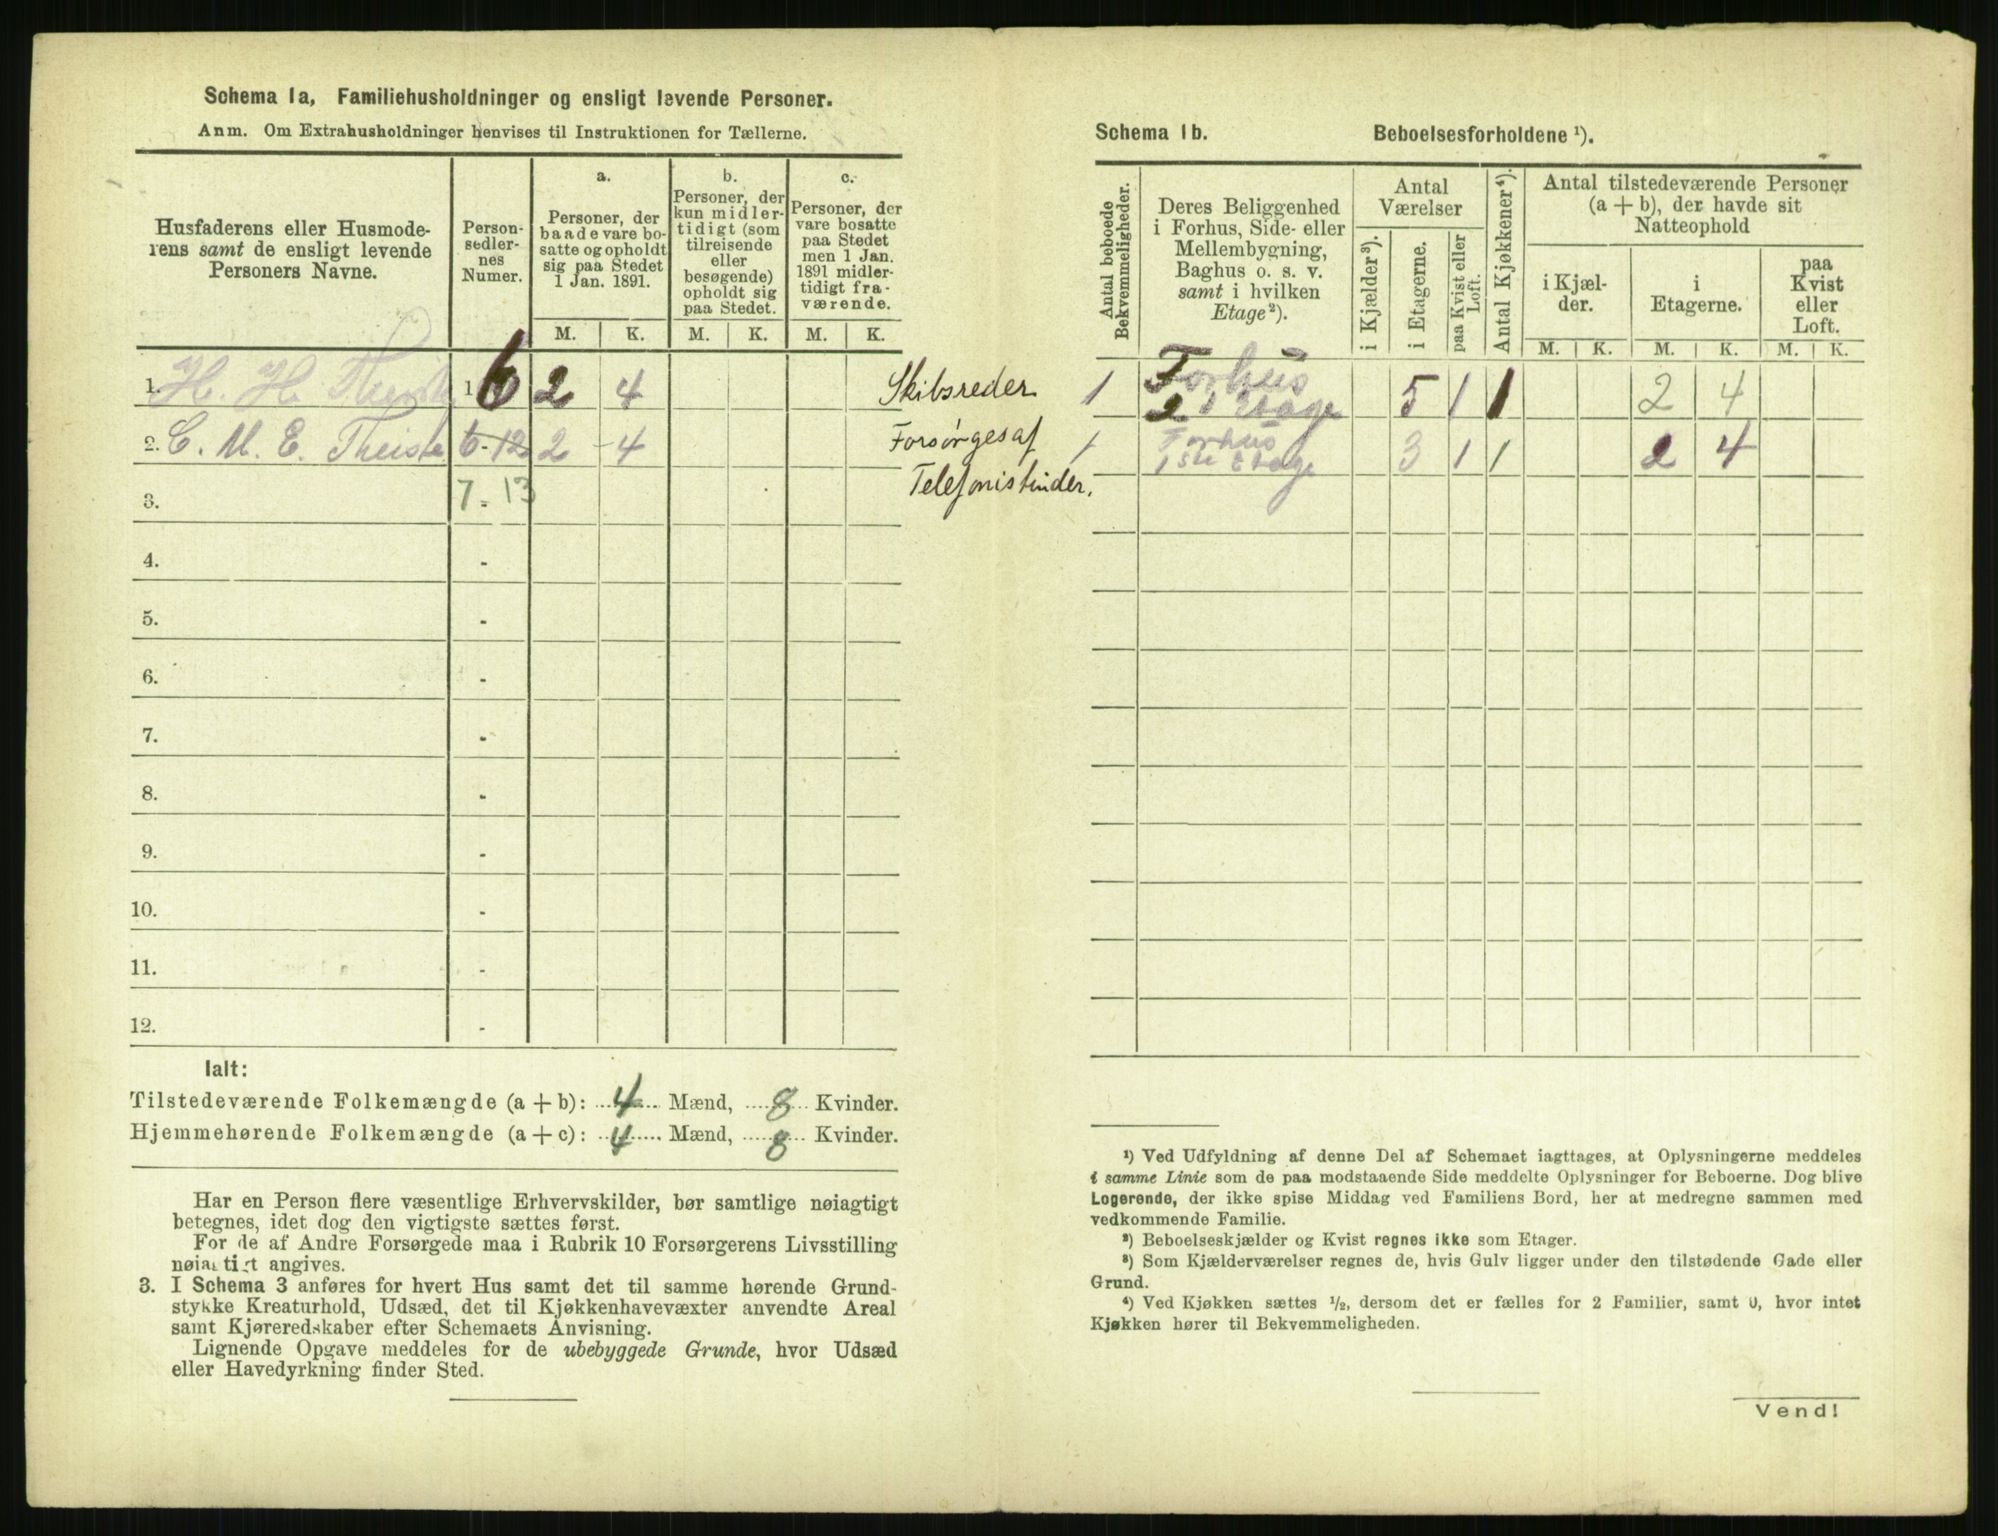 Schema 1a, Familiehusholdninger og ensligt levende Personer.
Anm. Om Extrahusholdninger henvises til Instruktionen for Tællerne.
Husfaderens eller Husmoderens samt de ensligt levende Personers Navne.
Personsedlernes Numer.
a.
Personer, der baade vare bosatte og opholdt sig paa Stedet 1 Jan. 1891.
b.
Personer, der kun midlertidigt (som tilreisende eller besøgende) opholdt sig paa Stedet.
c.
Personer, der vare bosatte paa Stedet men 1 Jan. 1891 midlertidigt fraværende.
M. K. M. K. M. K.
1. H. H. Theiste 1 6 2 4 Skibsreder
2. C. M. E. Theiste 6-12 2 - 4 Forsørges af
3. 7-13 Telefonistinder.
4. -
5. -
6. -
7. -
8. -
9. -
10. -
11. -
12. -
Ialt:
Tilstedeværende Folkemængde (a + b): 4 Mænd, 8 Kvinder.
Hjemmehørende Folkemængde (a + c): 4 Mænd, 8 Kvinder.
Har en Person flere væsentlige Erhvervskilder, bør samtlige nøiagtigt
betegnes, idet dog den vigtigste sættes først.
For de af Andre Forsørgede maa i Rubrik 10 Forsørgerens Livsstilling
nøiagtigt angives.
3. I Schema 3 anføres for hvert Hus samt det til samme hørende Grund-
stykke Kreaturhold, Udsæd, det til Kjøkkenhavevæxter anvendte Areal
samt Kjøreredskaber efter Schemaets Anvisning.
Lignende Opgave meddeles for de ubebyggede Grunde, hvor Udsæd
eller Havedyrkning finder Sted.
Schema 1b. Beboelsesforholdene ¹).
Antal beboede Bekvemmeligheder.
Deres Beliggenhed i Forhus, Side- eller Mellembygning, Baghus o. s. v. samt i hvilken Etage²).
Antal Værelser
i Kjælder³).
i Etagerne.
paa Kvist eller Loft.
Antal Kjøkkener⁴).
Antal tilstedeværende Personer (a + b), der havde sit Natteophold
i Kjælder.
i Etagerne.
paa Kvist eller Loft.
M. K. M. K. M. K.
1 Forhus 2 Etage 5 1 1 2 4
1 Forhus 1ste Etage 3 1 1 2 4
¹) Ved Udfyldning af denne Del af Schemaet iagttages, at Oplysningerne meddeles
i samme Linie som de paa modstaaende Side meddelte Oplysninger for Beboerne. Dog blive
Logerende, der ikke spise Middag ved Familiens Bord, her at medregne sammen med
vedkommende Familie.
²) Beboelseskjælder og Kvist regnes ikke som Etager.
³) Som Kjælderværelser regnes de, hvis Gulv ligger under den tilstødende Gade eller
Grund.
⁴) Ved Kjøkken sættes ½, dersom det er fælles for 2 Familier, samt 0, hvor intet
Kjøkken hører til Bekvemmeligheden.
Vend!